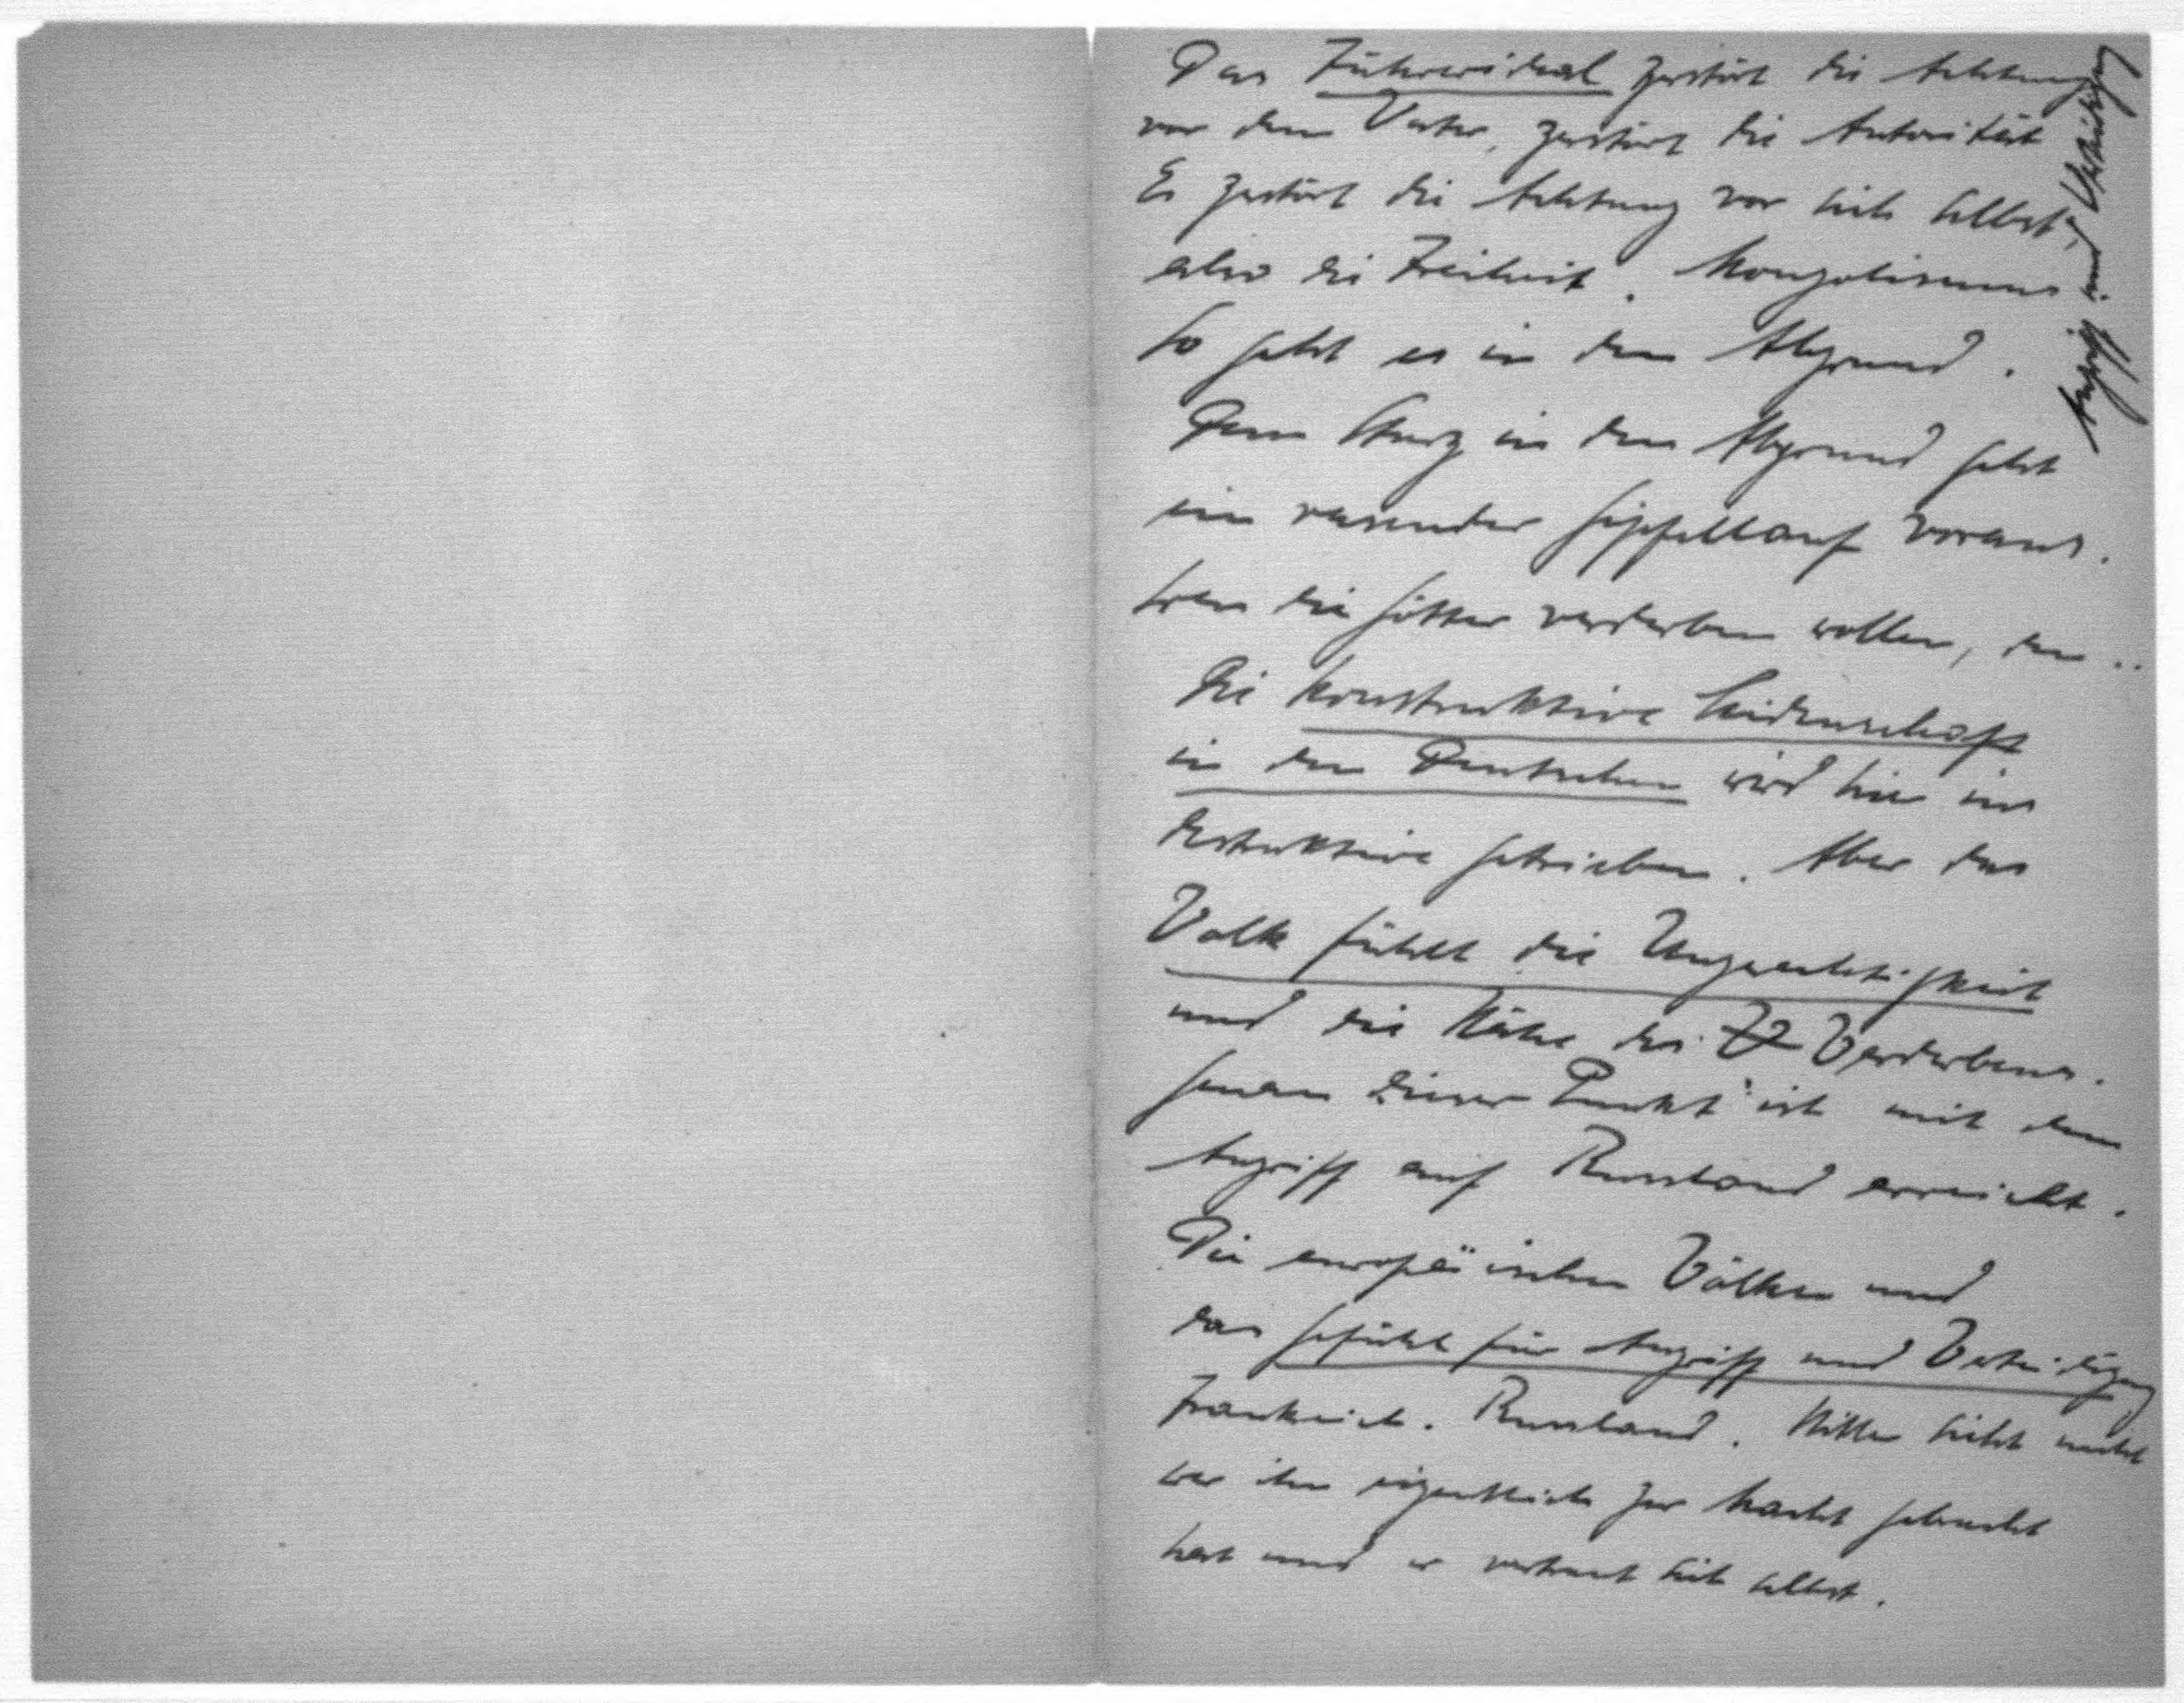 Das Führerideal zerstört die Achtung
vor dem Vater, zerstört die Autorität
Es zerstört die Achtung vor sich selbst,
also die Freiheit. Mongolismus
So geht es in den Abgrund.
Dem Sturz in den Abgrund geht
ein rasender Gipfellauf voraus.
Wen die Götter verderben wollen, den ..
Die konstruktive Leidenschaft
in den Deutschen wird hier ins
destruktive getrieben. Aber das
Volk fühlt die Ungerechtigkeit
und die Nähe des Verderbens.
Genau dieser Punkt ist mit dem
Angriff auf Russland erreicht.
Die europäischen Völker und
das Gefühl für Angriff und Verteidigung
Frankreich. Russland. Hitler sieht nicht
wer ihn eigentlich zur Macht gebracht
hat und er vertraut sich selbst.
Angriff und Verteidigung